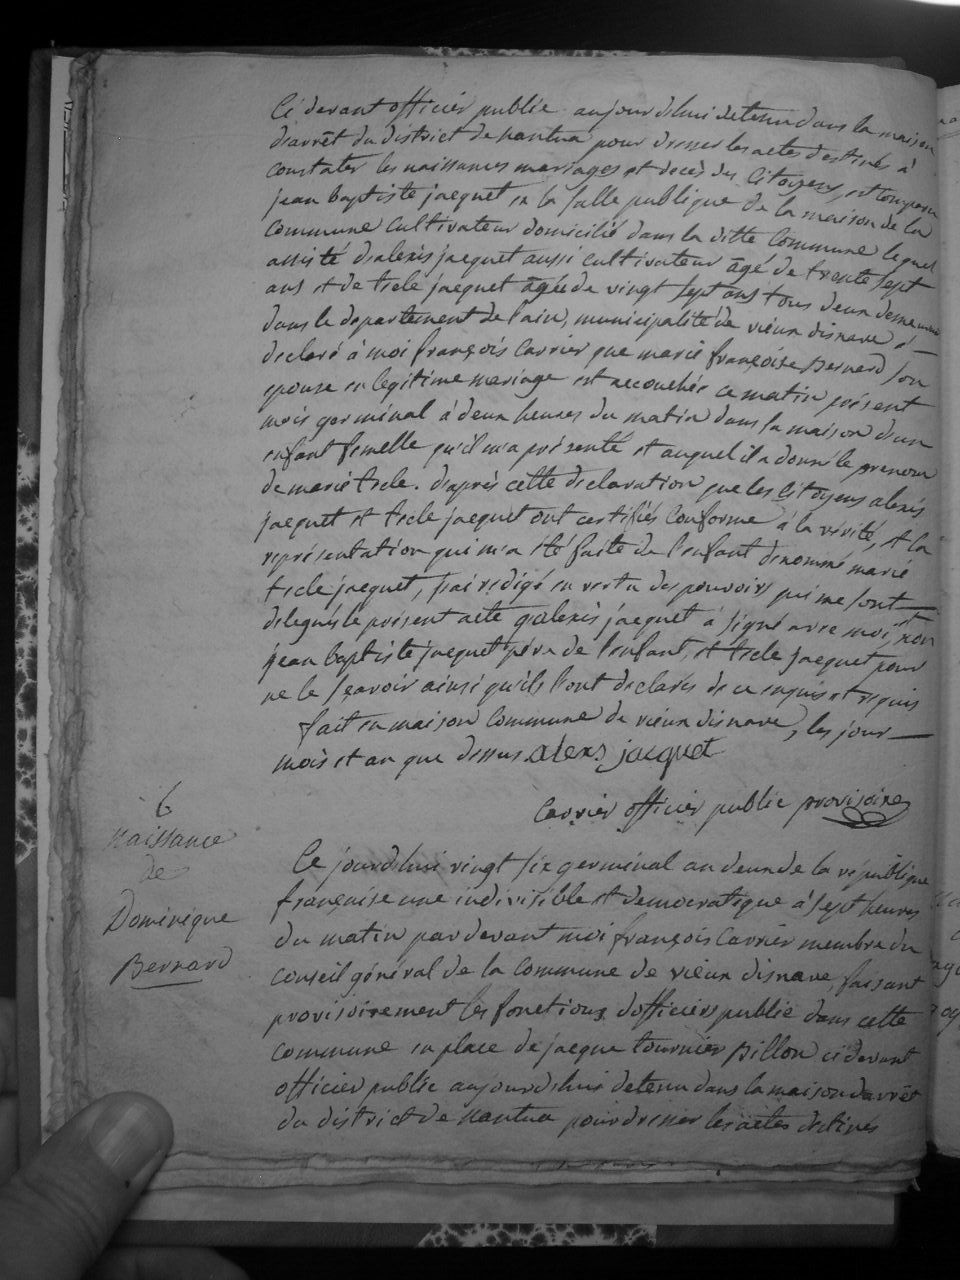 Ci devant officier public aujourdhui detenu dans la maison
darrêt du district de nantua pour dresser les actes destinés à
constater les naissances mariages et decès des Citoyens, est comparu
jean baptiste jacquet en la salle publique de la maison de la
commune cultivateur domicilié dans la ditte Commune lequel
assisté dalexis jacquet aussi cultivateur âgé de trente sept
ans et de tecle jacquet âgée de vingt sept ans tous deux demeurant
dans le departement de lain, municipalité de vieux disnave a
declaré à moi françois Carrier que marie françoise Bernard son
epouse en legitime mariage est accouchée ce matin présent
mois germinal à deux heures du matin dans sa maison dun
enfant femelle qu'il m'a présenté et auquel il a donné le prenom
de marie tecle. daprès cette declaration que les Citoyens alexis
jacquet et tecle jacquet ont certifiés conforme à la vérité, et la
représentation qui m'a été faite de l'enfant denommé marie
tecle jacquet, j'ai redigé en vertu des pouvoirs qui me sont
delegués le présent acte qu alexis jacquet à signé avec moi, et non
jean baptiste jacquet père de l'enfant, et tecle jacquet pour
ne le sçavoir ainsi qu'ils l'ont declarés de ce enquis et requis
fait en maison Commune de vieux disnave, les jour
mois et an que dessus. alexs jacquet
Carrier officier public provisoire
6
naissance
de
Dominique
Bernard
Ce jourdhui vingt six germinal an deux de la republique
françaisse une indivisible et democratique à sept heures
du matin par devant moi françois Carrier membre du
conseil général de la Commune de vieux disnave, faisant
provisoirement les fonctions dofficier public dans cette
commune en place de jacque tournier Billon ci devant
officier public aujourdhui detenu dans la maison darrêt
du district de nantua pour dresser les actes destinés